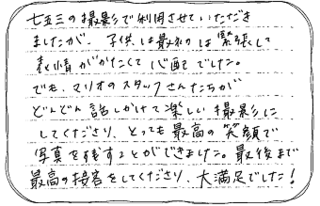 七五三の撮影で利用させていただき
ましたが、子供は最初は緊張して
表情がかたくて心配でした。
でも、マリオのスタッフさんたちが
どんどん話しかけて楽しい撮影に
してくださり、とっても最高の笑顔で
写真を残すことができました。最後まで
最高の接客をしてくださり、大満足でした!